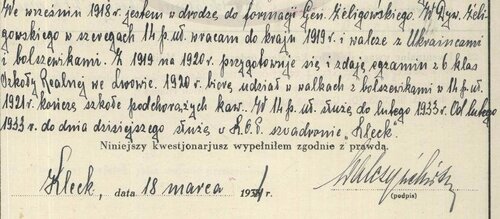 We wrześniu 1918 r. jestem w drodze do formacji Gen. Żeligowskiego. W Dyw. Żeli-
gowskiego w szeregach 14 p. uł. wracam do kraju 1919 r. i walczę z Ukraincami
i bolszewikami. Z 1919 na 1920 r. przygotowuje się i zdaję egzamin z 6 klas
Szkoły Realnej we Lwowie. 1920 r. biorę udział w walkach z bolszewikami w 14 p. uł.
1921 r. kończę szkołę podchorążych kaw. W 14 p. uł. służę do lutego 1933 r. Od lutego
1933 r. do dnia dzisiejszego służę w K.O.P. szwadronie „Kleck".
Niniejszy kwestjonarjusz wypełniłem zgodnie z prawdą.
Kleck, data 18 marca 1934 r.
(podpis)